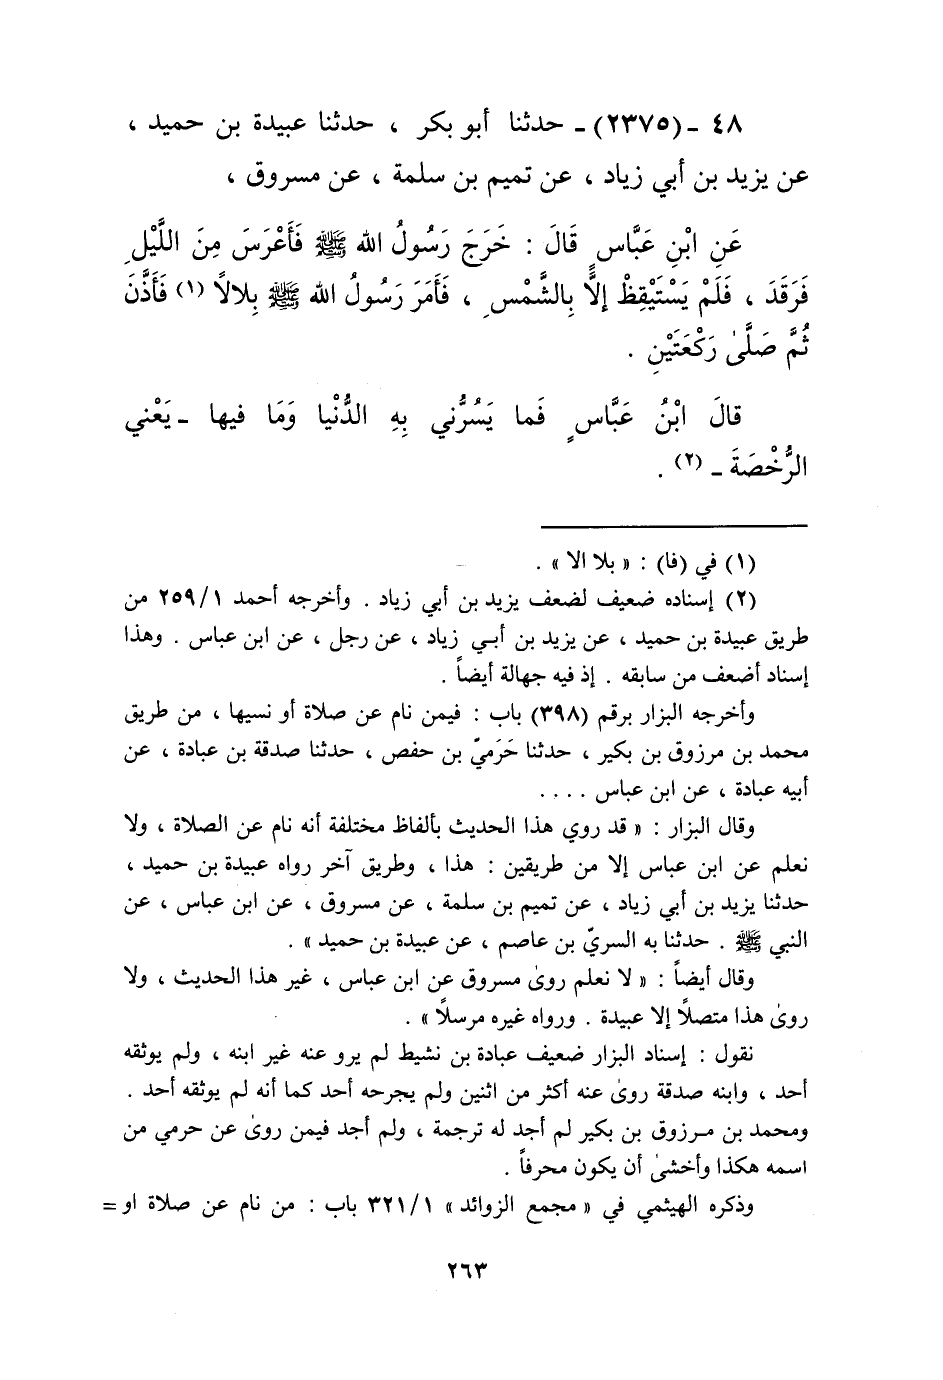 ٤٨ ـ (٢٣٧٥) ـ حدثنا أبو بكر ، حدثنا عبيدة بن حميد ،
عن يزيد بن أبي زياد ، عن تميم بن سلمة ، عن مسروق ،
عَنِ ابْنِ عَبَّاسٍ قَالَ : خَرَجَ رَسُولُ الله ﷺ فَأَعْرَسَ مِنَ اللَّيْلِ
فَرَقَدَ ، فَلَمْ يَسْتَيْقِظْ إلَّا بِالشَّمْسِ ، فَأَمَرَ رَسُولُ الله ﷺ بِلالاً (١) فَأَذَّنَ
ثُمَّ صَلَّىٰ رَكْعَتَيْنِ .
قالَ ابْنُ عَبَّاسٍ فَما يَسُرُّني بِهِ الدُّنْيا وَمَا فيها ـ يَعْني
الرُّخْصَةَ ـ (٢) .
(١) في (فا) : « بلا الا » .
(٢) إسناده ضعيف لضعف يزيد بن أبي زياد . وأخرجه أحمد ٢٥٩/١ من
طريق عبيدة بن حميد ، عن يزيد بن أبي زياد ، عن رجل ، عن ابن عباس . وهذا
إسناد أضعف من سابقه . إذ فيه جهالة أيضاً .
وأخرجه البزار برقم (٣٩٨) باب : فيمن نام عن صلاة أو نسيها ، من طريق
محمد بن مرزوق بن بكير ، حدثنا حَرَميّ بن حفص ، حدثنا صدقة بن عبادة ، عن
أبيه عبادة ، عن ابن عباس . . . .
وقال البزار : « قد روي هذا الحديث بألفاظ مختلفة أنه نام عن الصلاة ، ولا
نعلم عن ابن عباس إلا من طريقين : هذا ، وطريق آخر رواه عبيدة بن حميد ،
حدثنا يزيد بن أبي زياد ، عن تميم بن سلمة ، عن مسروق ، عن ابن عباس ، عن
النبي ﷺ . حدثنا به السريّ بن عاصم ، عن عبيدة بن حميد » .
وقال أيضاً : « لا نعلم روىٰ مسروق عن ابن عباس ، غير هذا الحديث ، ولا
روىٰ هذا متصلًا إلا عبيدة . ورواه غيره مرسلًا » .
نقول : إسناد البزار ضعيف عبادة بن نشيط لم يرو عنه غير ابنه ، ولم يوثقه
أحد ، وابنه صدقة روىٰ عنه أكثر من اثنين ولم يجرحه أحد كما أنه لم يوثقه أحد .
ومحمد بن مرزوق بن بكير لم أجد له ترجمة ، ولم أجد فيمن روىٰ عن حرمي من
اسمه هكذا وأخشىٰ أن يكون محرفاً .
وذكره الهيثمي في « مجمع الزوائد » ٣٢١/١ باب : من نام عن صلاة او =
٢٦٣